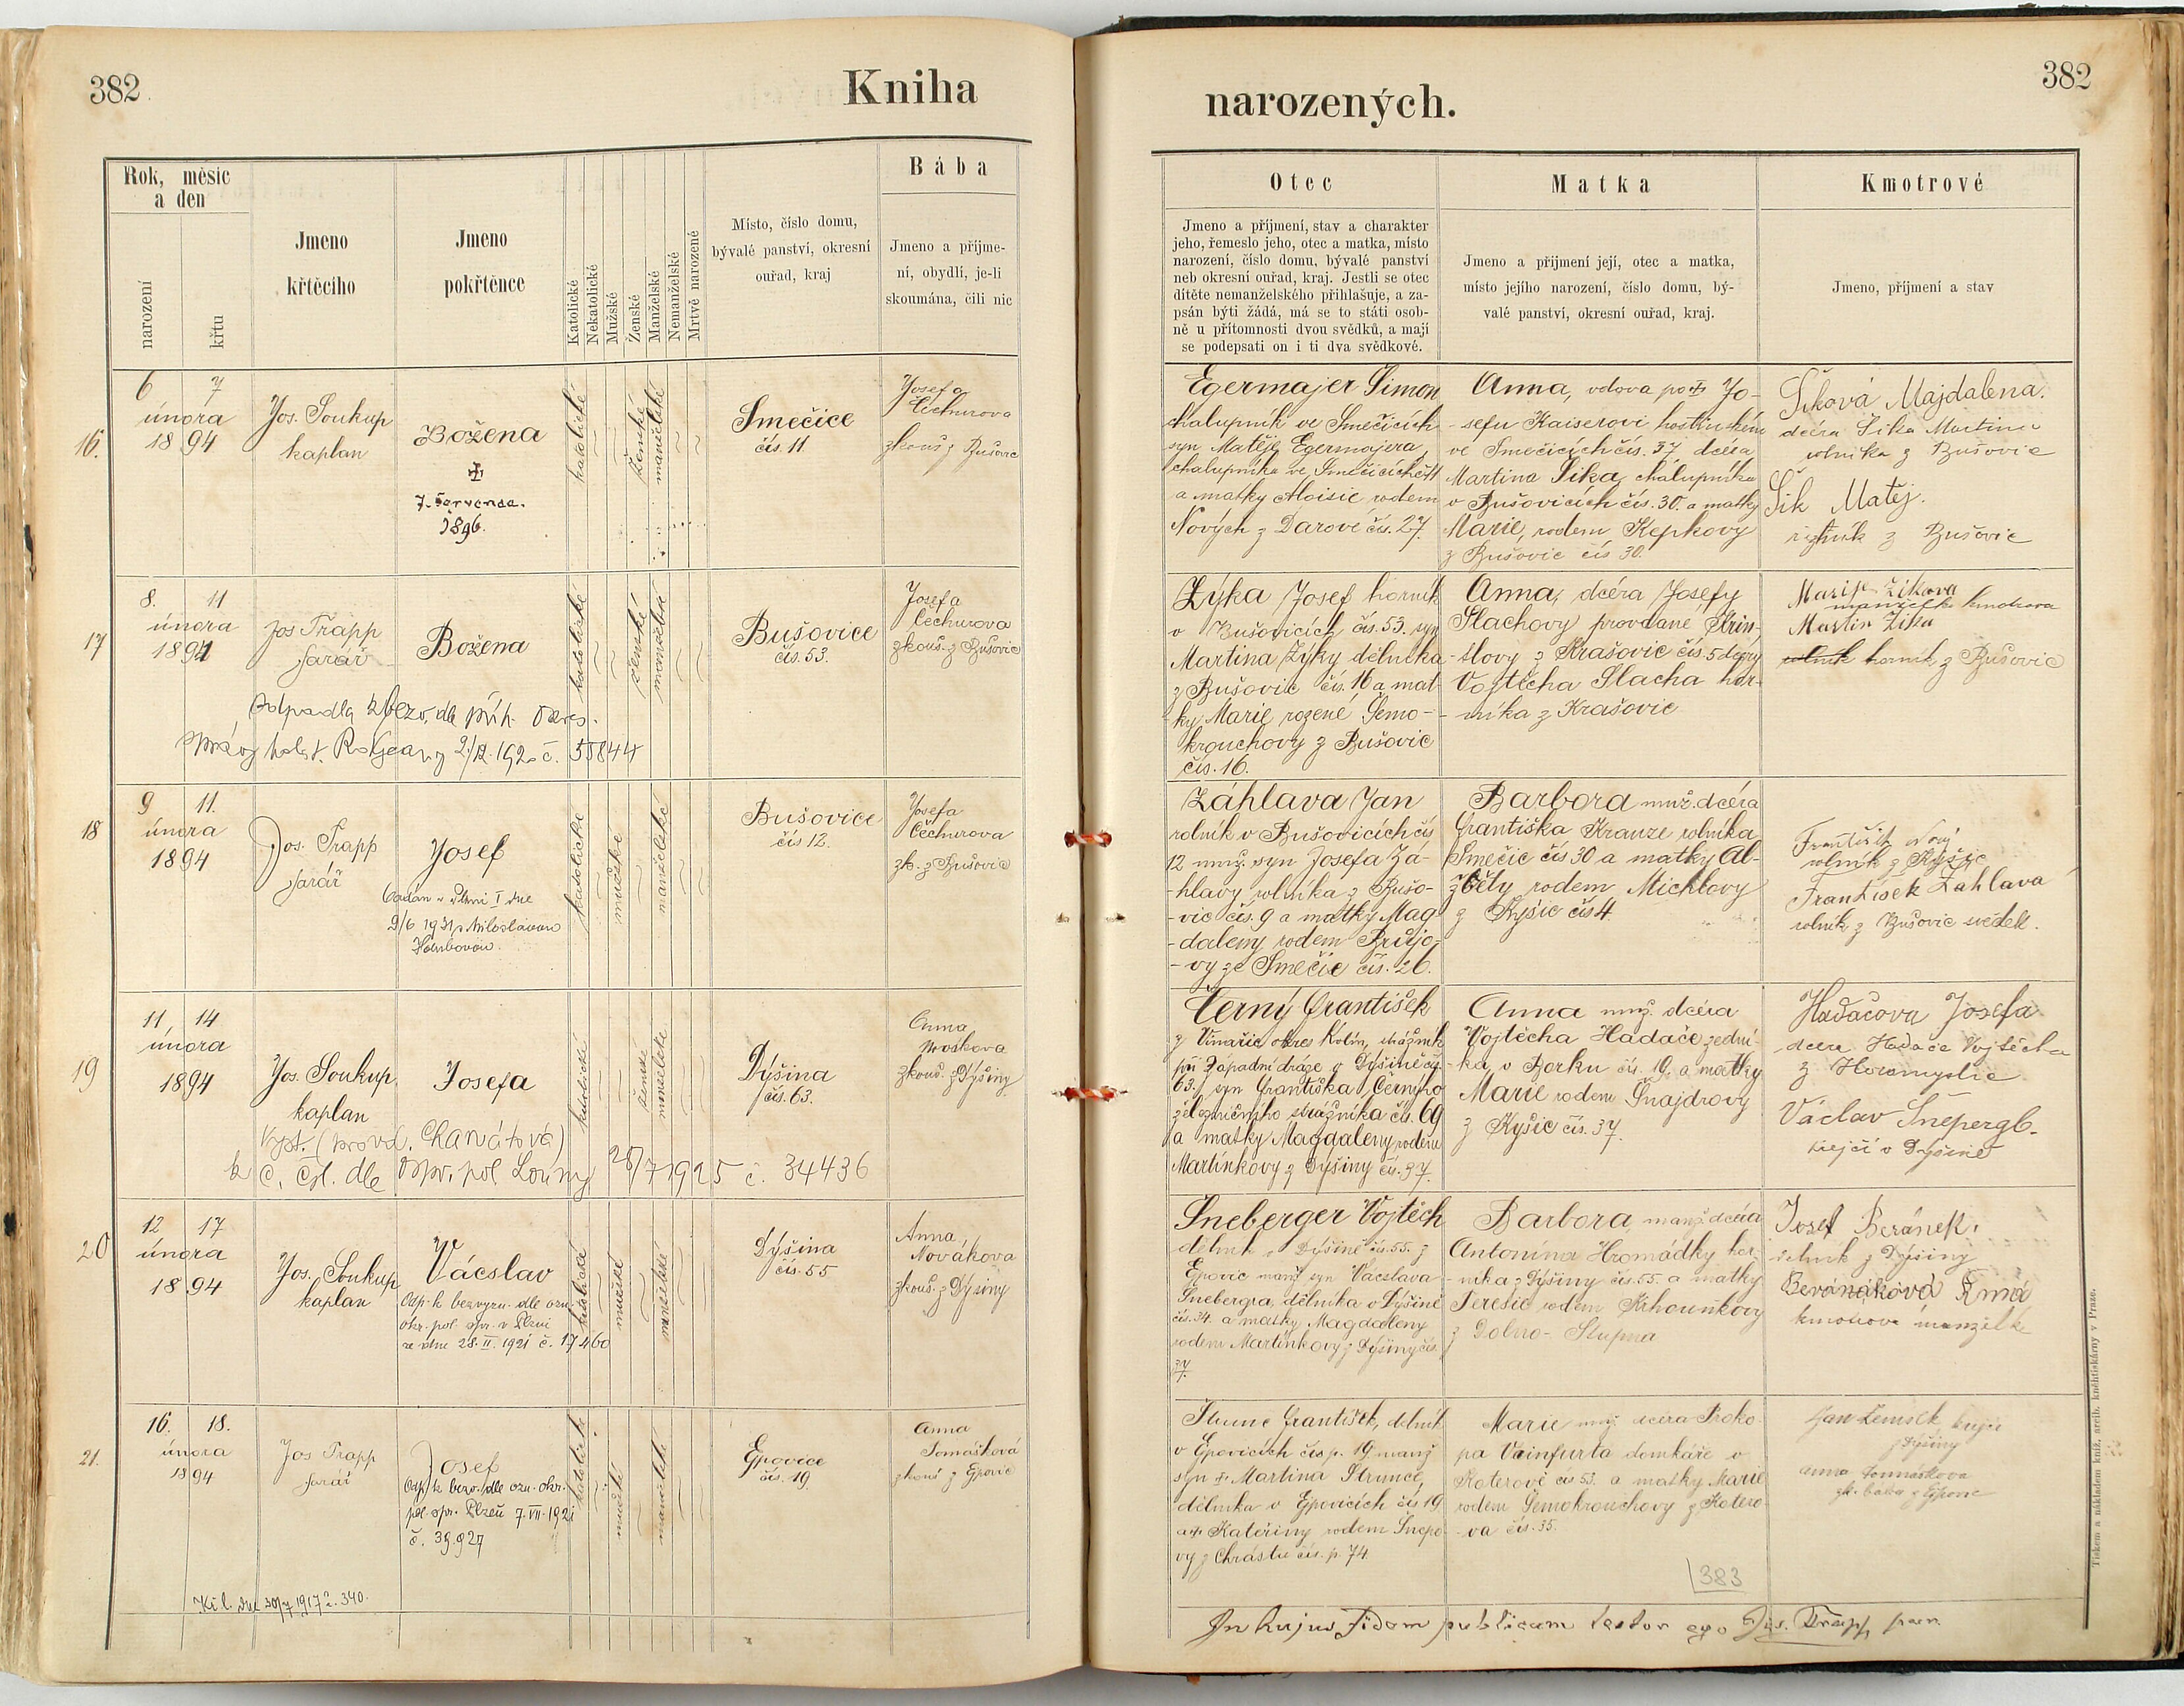 382
Kniha
Rok, měsíc
a den
narození
křtu
Jmeno
křtěcího
Jmeno
pokřtěnce
Katolické
Nekatolické
Mužské
Ženské
Manželské
Nemanželské
Mrtvě narozené
Místo, číslo domu,
bývalé panství, okresní
ouřad, kraj
Bába
Jmeno a příjme-
ní, obydlí, je-li
skoumána, čili nic
16.
6 7
února
1894
Jos. Soukup
kaplan
Božena
7. Července.
1896.
katolické
ženské
manželské
Smečice
čís. 11.
Josefa
Čechurova
zkouš. z Bušovic
17
8. 11
února
1894
Jos Trapp
farář
Božena
katolické
ženské
manželské
Bušovice
čís. 53.
Josefa
Čechurova
zkouš. z Bušovic
Odpadla k bezv. dle příh. Okres.
správy 192 č. 55844
18
9 11.
února
1894
Jos. Trapp
farář
Josef
Oddán v Plzni I dne
9/6 1931 s Miloslavou
katolické
mužské
manželské
Bušovice
čís 12.
Josefa
Čechurova
zk. z Bušovic
19
11, 14
února
1894
Jos. Soukup,
kaplan
Josefa
katolické
ženské
manželské
Dýšina
čís. 63.
Anna
zkouš. z Dýšiny
Vyst. (provd. Charvátová)
k č. čsl. dle Osp. pol Louny 28/7 1925 č. 34436
20
12 17
února
1894
Jos. Soukup
kaplan
Vácslav
Odp. k bezvyzn. dle ozn.
okr. pol. spr. v Plzni
ze dne 28. II. 1921 č. 17460
katolické
mužské
manželské
Dýšina
čís. 55
Anna,
Nováková
zkouš. z Dýšiny
21.
16. 18.
února
1894
Jos Trapp
farář
Josef
Odp. k bezv. dle ozn. okr.
pol. spr. Plzeň 7. VII. 1921
č. 39.927
katolické
mužské
manželské
Ejpovice
čís. 19
Anna
Tomášková
zkouš z Ejpovic
Kř. l. dne 20/7 1917 č. 340.
382
narozených.
Otec
Jmeno a příjmení, stav a charakter
jeho, řemeslo jeho, otec a matka, místo
narození, číslo domu, bývalé panství
neb okresní ouřad, kraj. Jestli se otec
dítěte nemanželského přihlašuje, a za-
psán býti žádá, má se to státi osob-
ně u přítomnosti dvou svědků, a mají
se podepsati on i ti dva svědkové.
Matka
Jmeno a příjmení její, otec a matka,
místo jejího narození, číslo domu, bý-
valé panství, okresní ouřad, kraj.
Kmotrové
Jmeno, příjmení a stav
Egermajer Šimon
chalupník ve Smečicích
syn Matěje Egermajera,
chalupníka ve Smečicích č. 11
a matky Aloisie rodem
Nových z Darové čís. 27.
Anna, vdova po Jo-
-sefu Kaiserovi hostinském
ve Smečicích čís. 37, dcéra
Martina Šika, chalupníka
v Bušovicích čís. 30. a matky
Marie, rodem Kepkovy
z Bušovic čís 30.
Šiková Majdalena.
dcéra Šika Martina
rolníka z Bušovic
Šik Matěj.
z Bušovic
Zýka Josef horník
v Bušovicích čís. 53. syn
Martina Zýky dělníka
z Bušovic čís. 16 a mat-
-ky Marie rozené Semo-
krouchovy z Bušovic
čís. 16.
Anna, dcéra Josefy
Slachovy provdané
z Krašovic čís. 5 dcery
Vojtěcha Slacha hor-
-níka z Krašovic
Marije Zikova
manželka kmotrova
Martin Zika
rolník horník z Bušovic
Záhlava Jan
rolník v Bušovicích čís
12 manž. syn Josefa Zá-
-hlavy rolníka z Bušo-
-vic čís. 9 a matky Mag-
-daleny rodem
-vy ze Smečic čís. 26.
Barbora manž. dcéra
Františka Kranze rolníka
Smečic čís 30 a matky Al-
žběty rodem Michlovy
z Kyšic čís 4.
František Nový
rolník z Kyšic
František Zahlava
rolník z Bušovic svědek.
Černý František
z okres Kolín, strážník
při západní dráze v Dýšině čís.
63. syn Františka Černýho
železničního strážníka čís. 69
a matky Magdaleny rodem
Martínkovy z Dýšiny čís. 37.
Anna manž. dcéra
Vojtěcha Hadače zední-
-ka, v Borku čís. 19. a matky
Marie rodem Šnajdrovy
z Kyšic čís. 37.
Hadačova Josefa
dcera Hadače Vojtěcha
z Horomyslic
Václav Šnepergb.
krejčí v Dýšině
Šneberger Vojtěch
dělník v Dýšině čís. 55. z
Ejpovic manž syn Vácslava
Šnebergra, dělníka v Dýšině
čís. 34. a matky Magdaleny
rodem Martínkovy z Dýšiny čís.
37.
Barbora manž. dcéra
Antonína Hromádky hor-
-níka z Dýšiny čís. 55. a matky
Teresie rodem Krhounkovy
z Dolno-Stupna
Josef Beránek.
dělník z Dýšiny
Beránáková Anna
kmotrova manželk
Strunc František, dělník
v Ejpovicích čís p. 19. manž
syn Martina Strunce,
dělníka v Ejpovicích čís 19
a Kateřiny rodem Šnepo
vy z Chrástu čís. p. 74.
Marie manž dcéra Proko
pa Vainfurta domkáře v
Koterově čís 53. a matky Marie
rodem Semokrouchovy z Kotero
-va čís. 35.
Jan Zemsek krejčí
z Dýšiny
Anna Tomáškova
zk. baba z Ejpovic
383
In hujus fidem publicam testor ego Jos. Trapp par.
Tiskem a nákladem kníž. arcib. knihtiskárny v Praze.